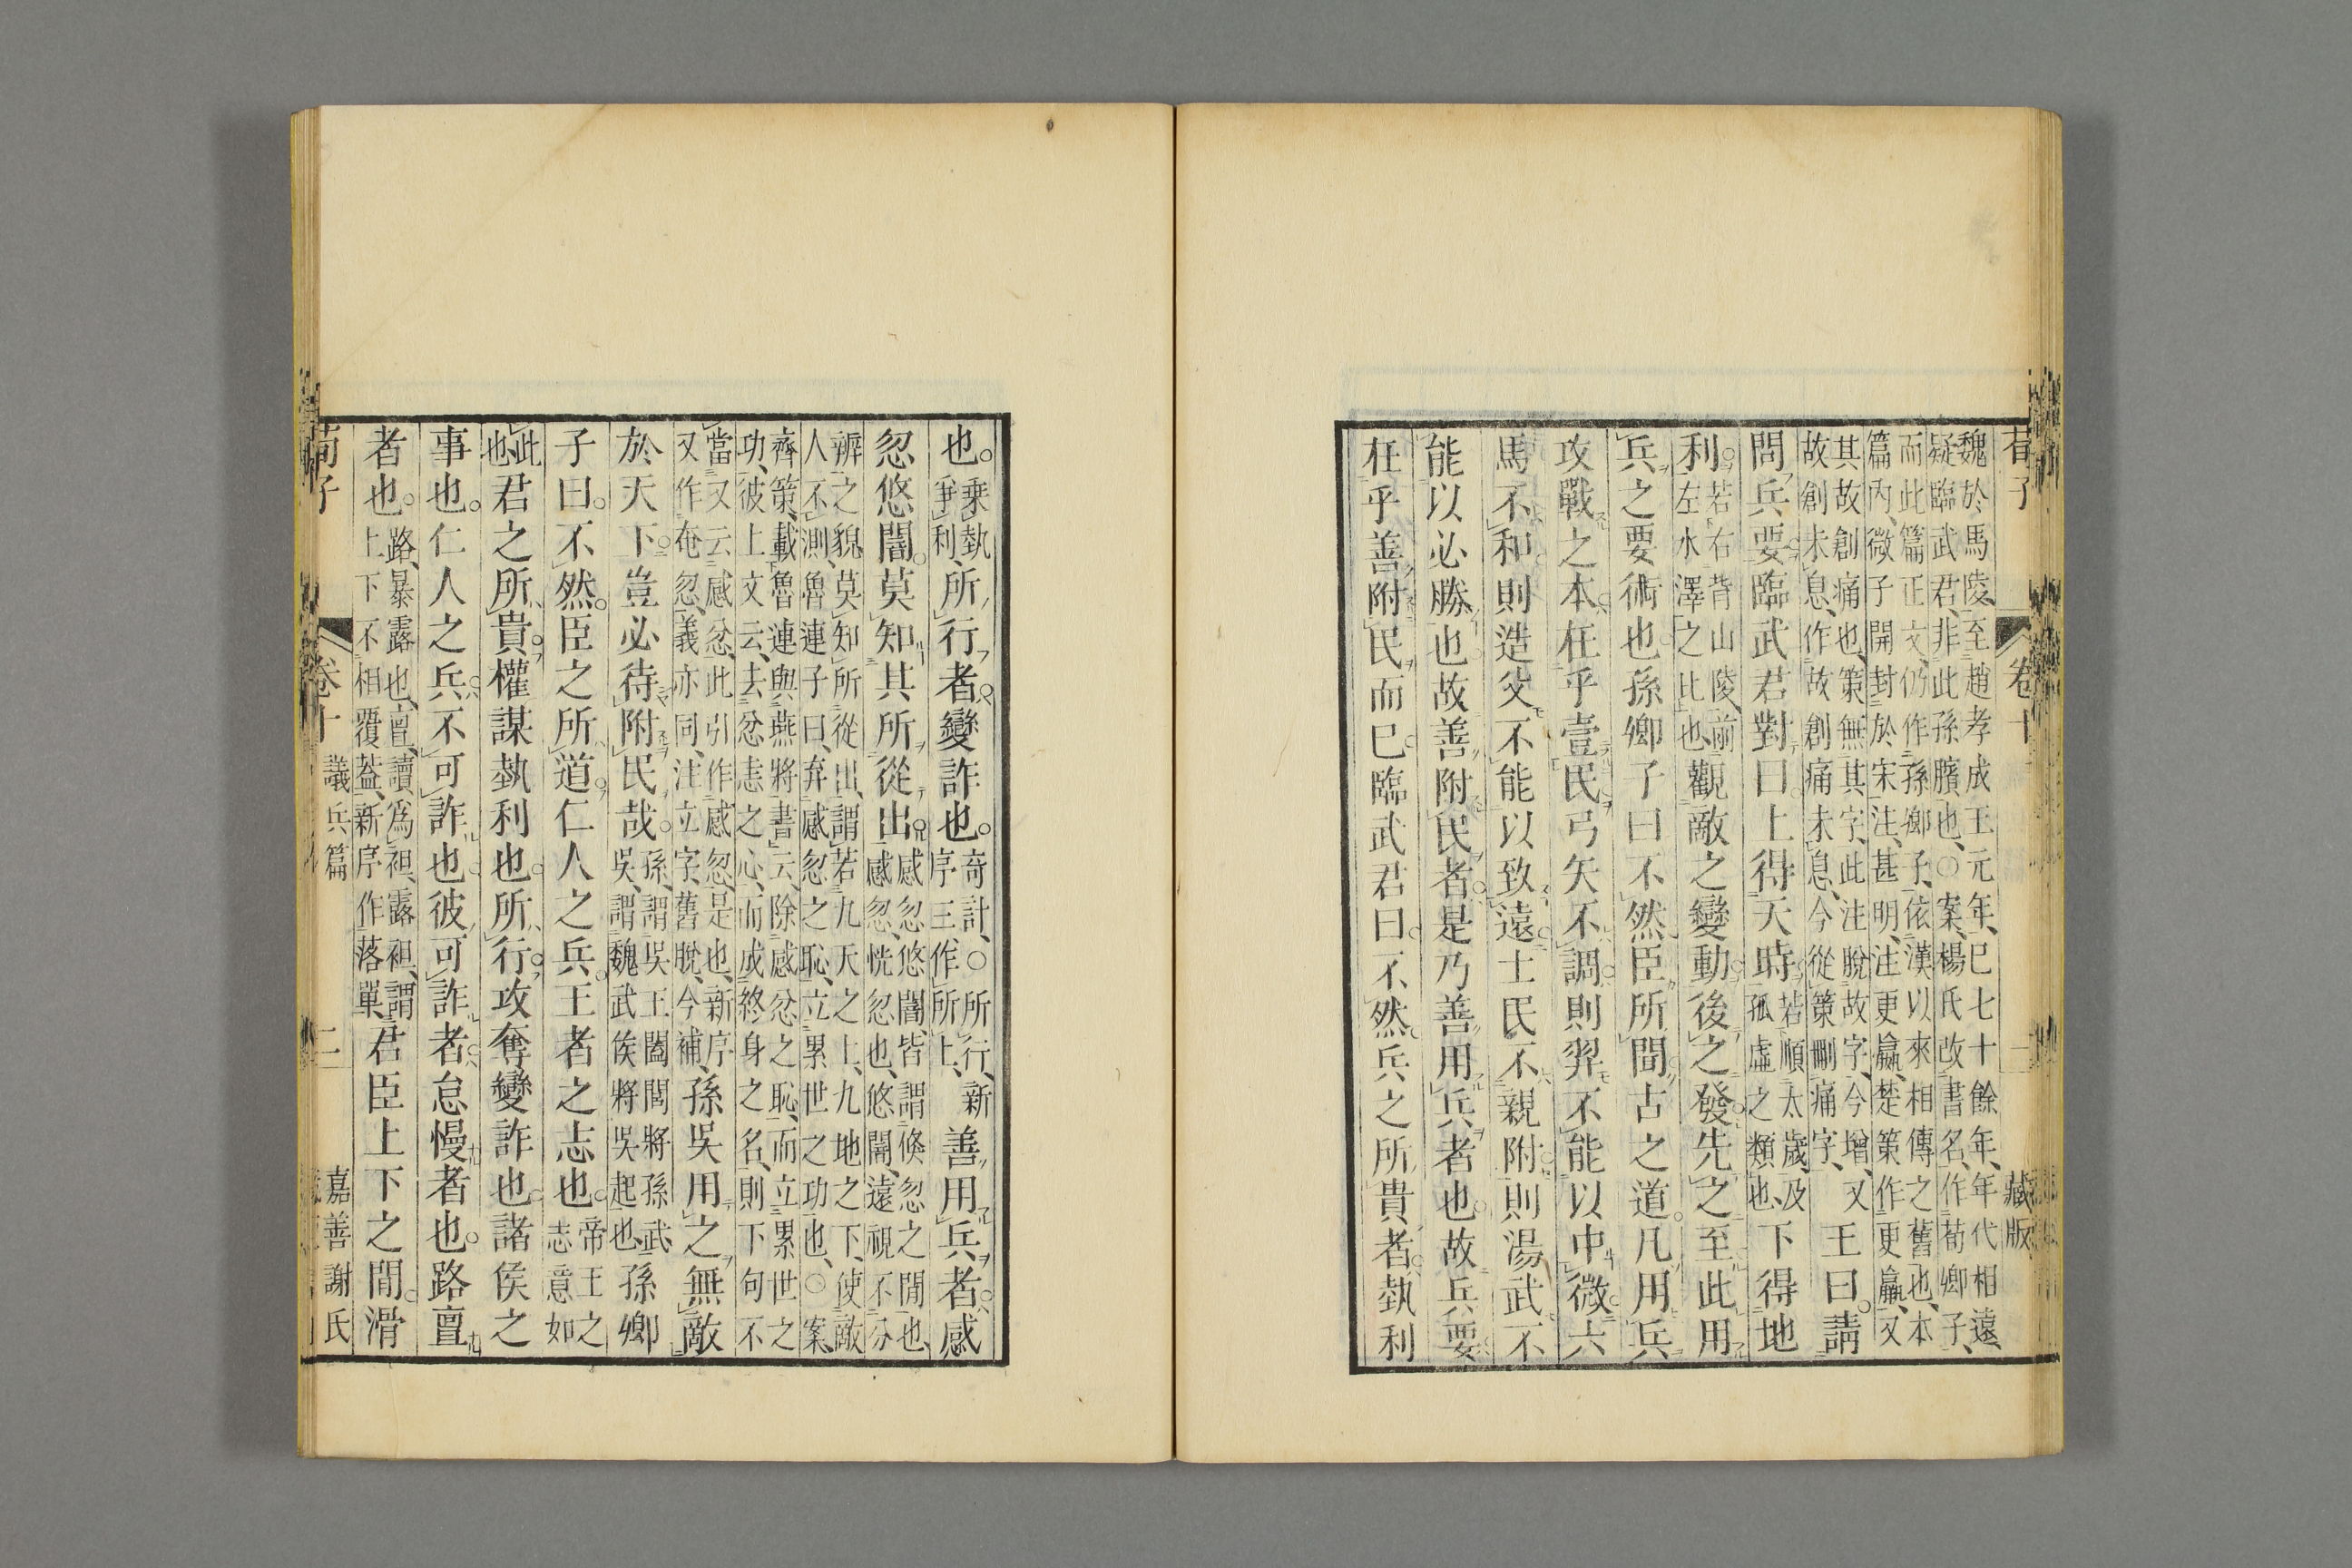 荀子
卷十
一
藏版
魏於馬陵、至趙孝成王元年、巳七十餘年、年代相遠、
疑臨武君、非此孫臏也、○案、楊氏改書名、作荀卿子、
而此篇正文仍作孫卿子、依漢以來相傳之舊也、本
篇內、微子開封於宋注、甚明、注更嬴、楚策作更羸、又
其故創痛也、策無其字、此注脫故字、今增、又
故創未息、作故創痛未息、今從策刪痛字、
王曰。請
問兵要。臨武君對曰上得天時。
若順太歲、及
孤虛之類也、
下得地
利。
若右背山陵、前
左水澤之比也、
觀敵之變動。後之發。先之至。此用
兵之要術也。孫卿子曰不然。臣所聞古之道。凡用兵
攻戰之本。在乎壹民。弓矢不調。則羿不能以中微。六
馬不和。則造父不能以致遠。士民不親附。則湯武不
能以必勝也。故善附民者。是乃善用兵者也。故兵要
在乎善附民而巳。臨武君曰。不然。兵之所貴者。埶利
也。
乘埶、
爭利、
所行者。變詐也。
奇計、○所行、新
序王作所上、
善用兵者。感
忽悠闇。莫知其所從出。
感忽悠闇、皆謂倏忽之閒也、
感忽、恍忽也、悠闇、遠視不分
辨之貌、莫知所從出、謂若九天之上、九地之下、使敵
人不測、魯連子曰、弃感忽之恥、立累世之功也、○案、
齊策、載魯連與燕將書云、除感忿之恥、而立累世之
功、彼上文云、去忿恚之心、而成終身之名、則下句不
當又云感忿、此引作感忽、是也、新序
又作奄忽、義亦同、注立字、舊脫、今補、
孫吳用之無敵
於天下。豈必待附民哉。
孫、謂吳王闔閭將孫武、
吳、謂魏武侯將吳起也、
孫卿
子曰。不然。臣之所道。仁人之兵。王者之志也。
帝王之
志意如
此
也、
君之所貴。權謀埶利也。所行。攻奪變詐也。諸侯之
事也。仁人之兵。不可詐也。彼可詐者。怠慢者也。路亶
者也。
路、暴露也、亶、讀爲袒、露袒、謂
上下不相覆蓋、新序作落單、
君臣上下之閒。滑
荀子
卷十
議兵篇
二
嘉善謝氏